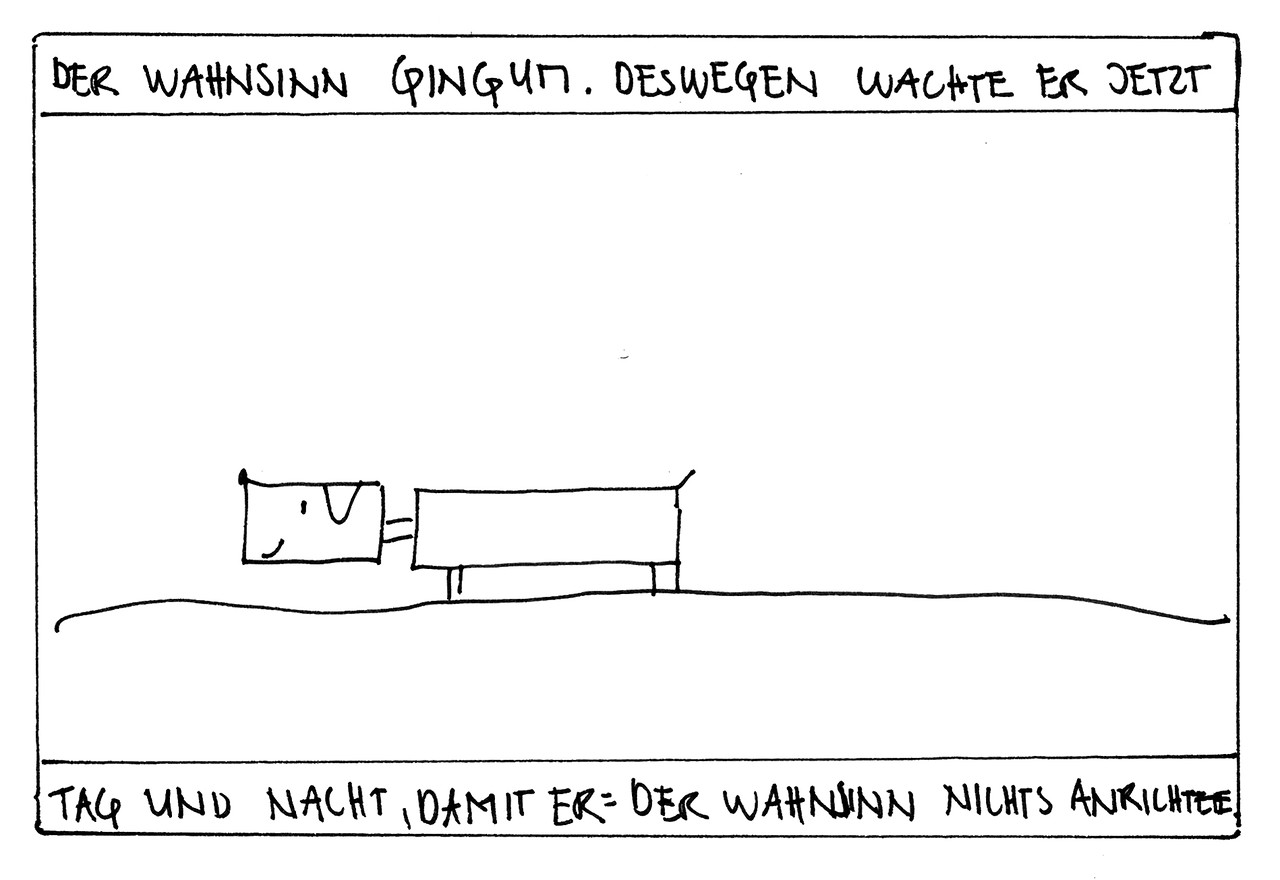 DER WAHNSINN GING UM. DESWEGEN WACHTE ER JETZT
TAG UND NACHT, DAMIT ER = DER WAHNSINN NICHTS ANRICHTETE.